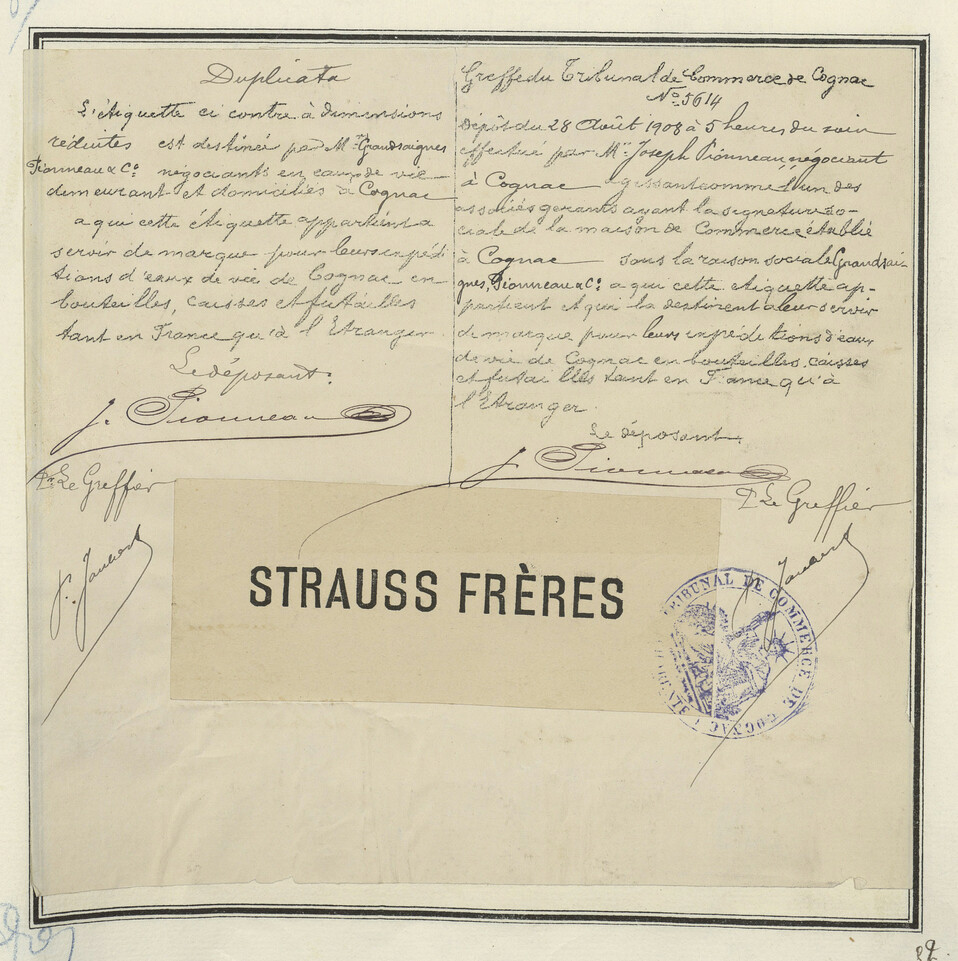 Duplicata
L'étiquette ci contre à dimensions
réduites est destinée par Mrs Grandsaignes
Pionneau & Co négociants en eaux de vie
demeurant et domiciliés à Cognac
a qui cette étiquette appartient a
servir de marque pour leurs expédi
tions d'eaux de vie de Cognac en
bouteilles, caisses et futailles
tant en France qu'à l'Etranger
Le déposant.
J. Pionneau
Pr Le Greffier
Greffe du Tribunal de Commerce de Cognac
No 5614
Dépôt du 28 Août 1908 à 5 heures du soir
effectué par Mr Joseph Pionneau, négociant
à Cognac agissant comme l'un des
associés gérants ayant la signature so-
ciale de la maison de Commerce établie
à Cognac sous la raison sociale Grandsai-
gnes, Pionneau & Co a qui cette étiquette ap-
partient et qui la destinent a leur servir
de marque pour leurs expéditions d'eaux
de vie de Cognac en bouteilles, caisses
et futailles tant en France qu'à
l'Etranger.
Le déposant.
J. Pionneau
Pr Le Greffier
STRAUSS FRÈRES
TRIBUNAL DE COMMERCE DE COGNAC